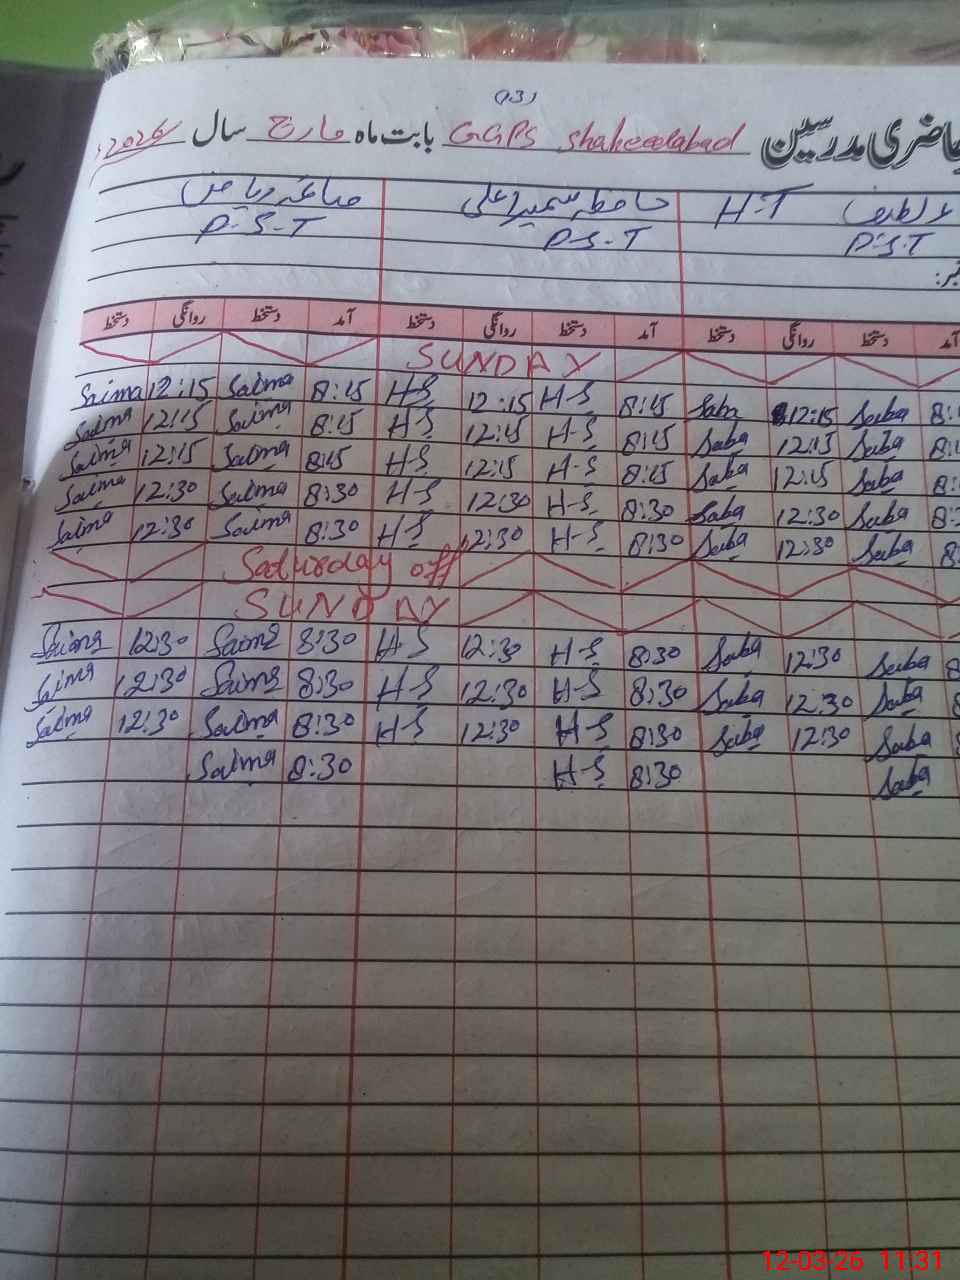 (13)
حاضری مدرسین GGPS Shaheedabad بابت ماہ مارچ سال 2026
H-T حافظہ
P.S.T P-S-T P-S-T
نمبر:
آمد دستخط روانگی دستخط آمد دستخط روانگی دستخط آمد دستخط روانگی دستخط
SUNDAY
Saima 12:15 Saima 8:15 H-S 12:15 H-S 8:15 Saba 12:15 Saba 8:
Saima 12:15 Saima 8:15 H-S 12:15 H-S 8:15 Saba 12:15 Saba 8:
Saima 12:15 Saima 8:15 H-S 12:15 H-S 8:15 Saba 12:15 Saba 8:
Saima 12:30 Saima 8:30 H-S 12:30 H-S 8:30 Saba 12:30 Saba 8:
Saima 12:30 Saima 8:30 H-S 12:30 H-S 8:30 Saba 12:30 Saba 8
Saturday off
SUNDAY
Saima 12:30 Saima 8:30 H-S 12:30 H-S 8:30 Saba 12:30 Saba 8
Saima 12:30 Saima 8:30 H-S 12:30 H-S 8:30 Saba 12:30 Saba 8
Saima 12:30 Saima 8:30 H-S 12:30 H-S 8:30 Saba 12:30 Saba 8
Saima 8:30 H-S 8:30 Saba
12-03-26 11:31